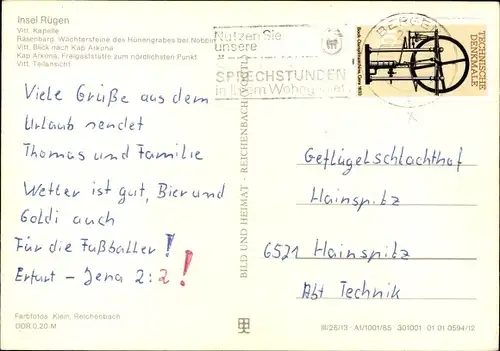 Insel Rügen
Vitt. Kapelle
Vitt. Blick nach Kap Arkona
Kap Arkona, Freigaststätte zum nördlichsten Punkt
Vitt. Teilansicht
Nutzen Sie
unsere
SPRECHSTUNDEN
BERGEN
TECHNISCHE
DENKMALE
Viele Grüße aus dem
Urlaub sendet
Thomas und Familie
Wetter ist gut, Bier und
Goldi auch
Für die Fußballer!
Erfurt – Jena 2:2!
BILD UND HEIMAT · REICHENBACH
Geflügelschlachthof
Hainspitz
6521 Hainspitz
Abt Technik
Farbfotos Klein, Reichenbach
DDR 0,20 M
III/26/13 A1/1001/85 301001 01 01 0594/12